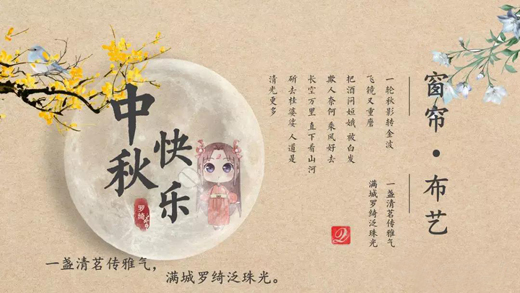 中秋
快乐
罗绮
一盏清茗传雅气，
满城罗绮泛珠光。
窗帘·布艺
一轮秋影转金波
飞镜又重磨
把酒问姮娥 被白发
欺人奈何 乘风好去
长空万里 直下看山河
斫去桂婆娑 人道是
清光更多
一盏清茗传雅气
满城罗绮泛珠光